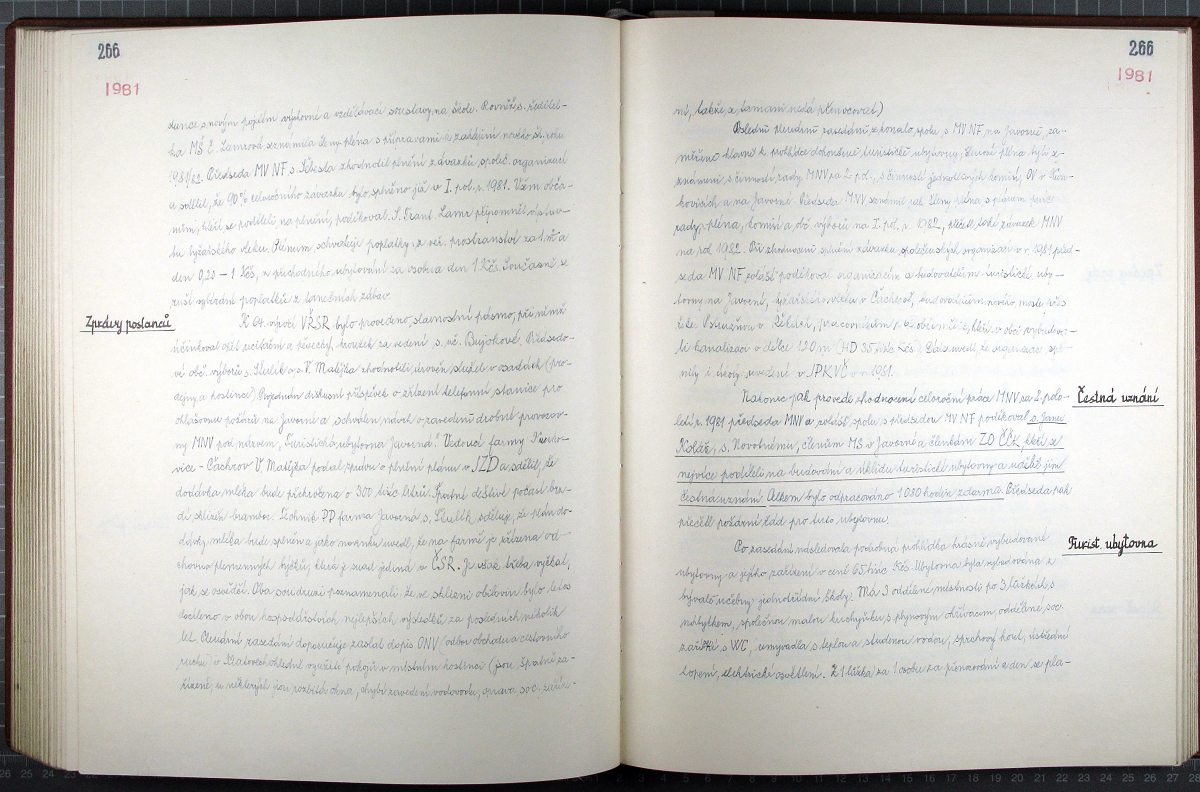 266
1981
tance s novým pojetím výchovné a vzdělávací soustavy na škole. Rovněž s. ředitel-
ka MŠ Č. Lamzová seznámila členy pléna s přípravami k zahájení nového šk. roku
1981/82. Předseda MV NF s. Sekada zhodnotil plnění závazků společ. organizací
a sdělil, že 90% celoročního závazku bylo splněno již v I. pol. r. 1981. Všem obča-
nům, kteří se podíleli na plnění, poděkoval. S. Frant. Lamz připomněl výstav-
bu lyžařského vleku. Plénum schvaluje poplatky z veř. prostranství za 1 m² a
den 0,20 – 1 Kčs, z přechodného ubytování za osobu a den 1 Kčs. Současně se
ruší vybírání poplatků z tanečních zábav.
Zprávy poslanců
K 64. výročí VŘSR bylo provedeno slavnostní pásmo, při němž
účinkoval opět recitační a pěvecký kroužek za vedení s. uč. Bujokové. Předsedo-
vé obč. výborů s. Stulík a s. V. Matějka zhodnotili úroveň služeb v osadách (pro-
dejny a hostince). Projednán diskusní příspěvek o zřízení telefonní stanice pro
ohlašovnu požárů na Javorné a schválen návrh o zavedení drobné provozov-
ny MNV pod názvem „Turistická ubytovna Javorná". Vedoucí farmy
vice - Čachrov V. Matějka podal zprávu o plnění plánu v JZD a sdělil, že
dodávka mléka bude překročena o 300 tisíc litrů. Špatné deštivé počasí brz-
dí sklizeň brambor. Technik PP farma Javorná s. Stulík sděluje, že plán do-
dávky mléka bude splněn a jako novinku uvedl, že na farmě je zřízena od-
chovna plemenných býčků, která je snad jediná v ČSR. Je však třeba vyčkat,
jak se osvědčí. Oba soudruzi poznamenali, že ve sklizni obilovin bylo letos
docíleno v obou hospodářstvích nejlepších výsledků za posledních několik
let. Plenární zasedání doporučuje zaslat dopis ONV (odbor obchodu a cestovního
ruchu) v Klatovech ohledně využití pokojů v místním hostinci (jsou špatně za-
řízené, u některých jsou rozbitá okna, chybí zavedení vodovodu, oprava soc. zaříz-
266
1981
ní, takže se tam ani nedá přenocovat.)
Poslední plenární zasedání se konalo spolu s MV NF na Javorné, za-
měřeno hlavně k prohlídce dokončené turistické ubytovny. Členové pléna byli se-
známeni s činností rady MNV za 2. pol., s činností jednotlivých komisí, OV v
kovicích a na Javorné. Předseda MNV seznámil pak členy pléna s plánem práce
rady, pléna, komisí a obč. výborů na I. pol. r. 1982, přečetl také závazek MNV
na rok 1982. Při zhodnocení splnění závazku společenských organizací v r. 1981 před-
seda MV NF zvlášť poděkoval organizacím a budovatelům turistické uby-
tovny na Javorné, lyžařského vleku v Čachrově, budovatelům nového mostu přes
řeku Ostružnou v Zhůřích, pracovitému občanů, kteří v obci vybudova-
li kanalizaci v délce 120 m (HD 35 tisíc Kčs). Dále uvedl, že organizace spl-
nily i úkoly uvedené v JPKVČ v r. 1981.
Čestná uznání
Nakonec pak provedl zhodnocení celoroční práce MNV za 2. polo-
letí r. 1981 předseda MNV a zvlášť spolu s předsedou MV NF poděkoval s. Janu
Koláři, s. Novotnému, členům MS v Javorné a členkám ZO ČČK, kteří se
nejvíce podíleli na budování a úklidu turistické ubytovny a udělil jim
čestná uznání. Celkem bylo odpracováno 1 080 hodin zdarma. Předseda pak
přečetl požární řád pro tuto ubytovnu.
Turist. ubytovna
Po zasedání následovala podrobná prohlídka krásně vybudované
ubytovny a jejího zařízení v ceně 65 tisíc Kčs. Ubytovna byla vybudována z
bývalé učebny jednotřídní školy. Má 3 oddělené místnosti po 3 lůžkách s
nábytkem, společnou malou kuchyňku s plynovým ohřívačem, oddělené soc.
zařízení s WC, umyvadla s teplou a studenou vodou, sprchový kout, ústřední
topení, elektrické osvětlení. Z 1 lůžka za 1 osobu za přenocování a den se pla-